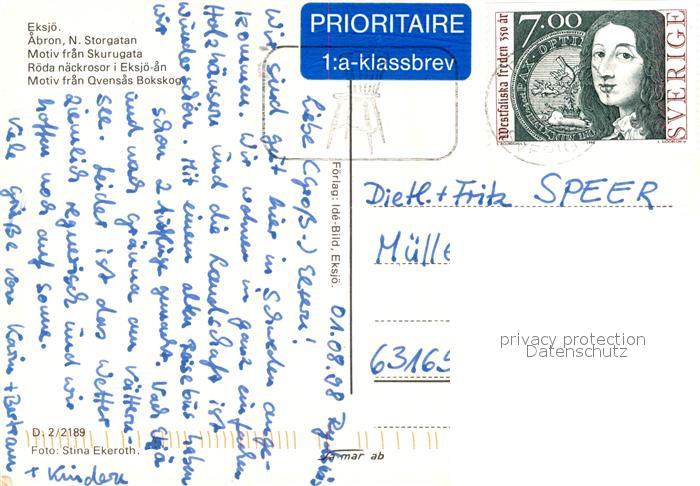 Eksjö.
Åbron, N. Storgatan
Motiv från Skurugata
Röda näckrosor i Eksjö-ån
Motiv från Qvensås Bokskog
PRIORITAIRE
1:a-klassbrev
7.00
SVERIGE
Westfaliska freden 350 år
PAX OPTI
01.08.98
Liebe (Groß-) Eltern!
Wir sind gut hier in Schweden ange-
kommen. Wir wohnen in ganz einfachen
Holzhäusern und die Landschaft ist
wunderschön. Mit einem alten Reisebus haben
wir schon 2 Ausflüge gemacht. Nach
und nach Gränna am Vättern-
see. Leider ist das Wetter
ziemlich regnerisch und wir
hoffen noch auf Sonne.
Viele Grüße von Karin + Bertram
+ Kindern
Förlag: Idé-Bild, Eksjö.
Dietl. + Fritz SPEER
Mülle
63165
privacy protection
Datenschutz
D. 2/2189
Foto: Stina Ekeroth.
mar ab